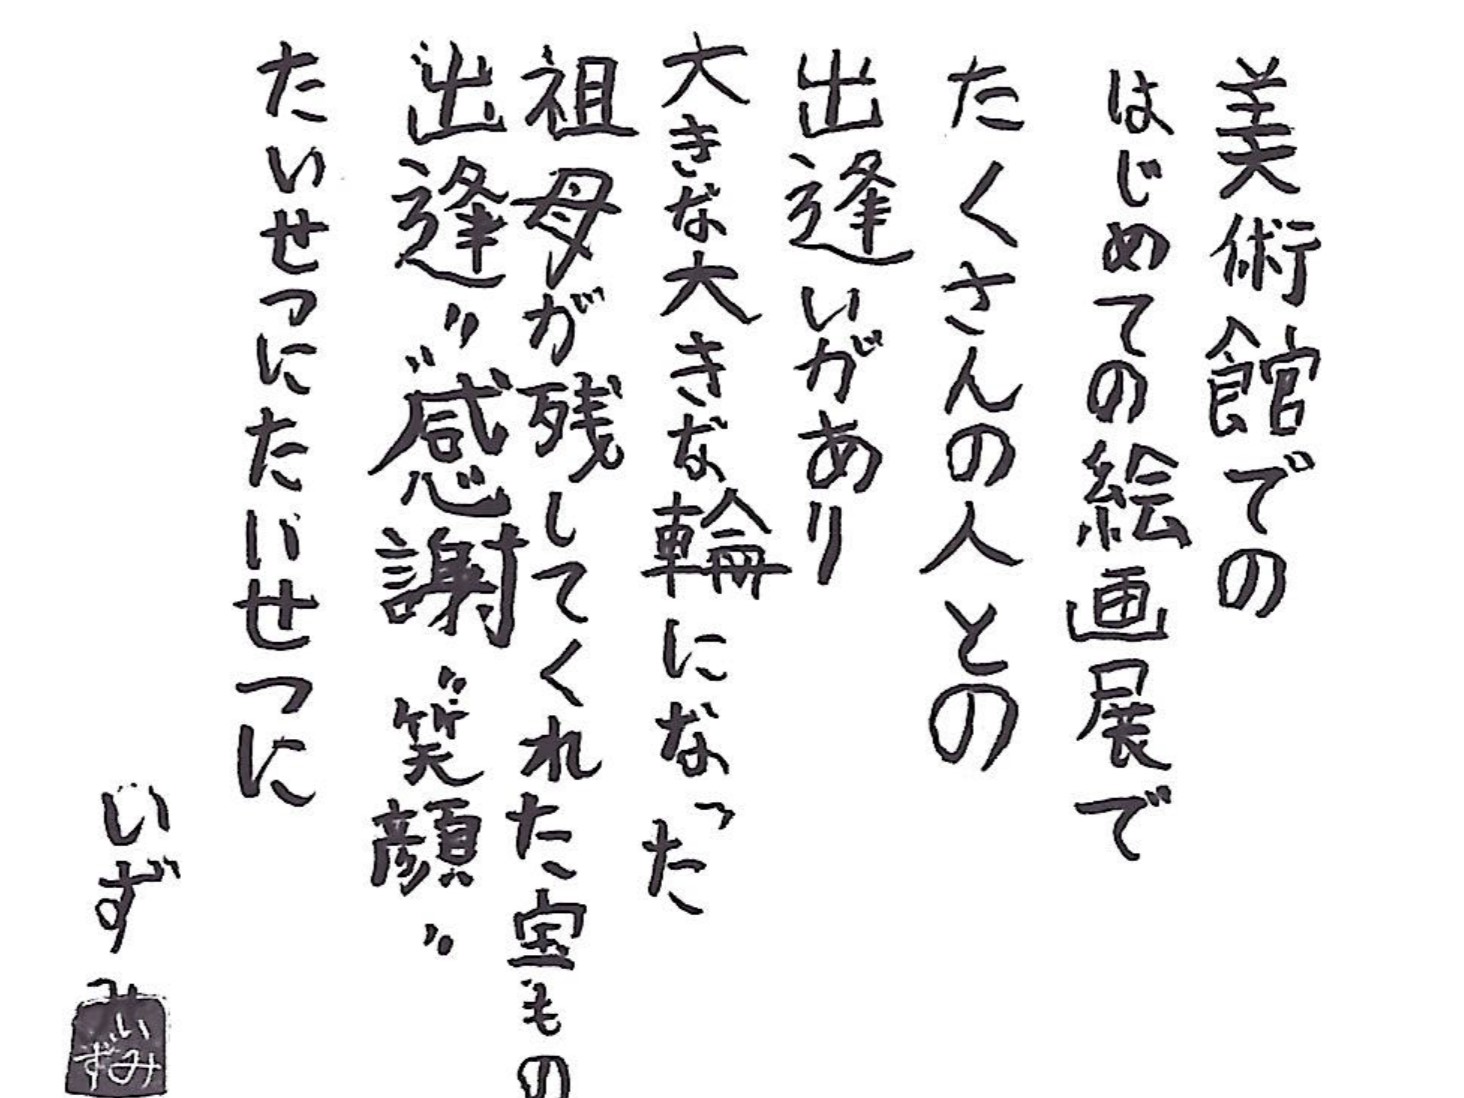 美術館での
はじめての絵画展で
たくさんの人との
出逢いがあり
大きな大きな輪になった
祖母が残してくれた宝もの
"出逢" "感謝" "笑顔"
たいせつにたいせつに
いずみ
いずみ